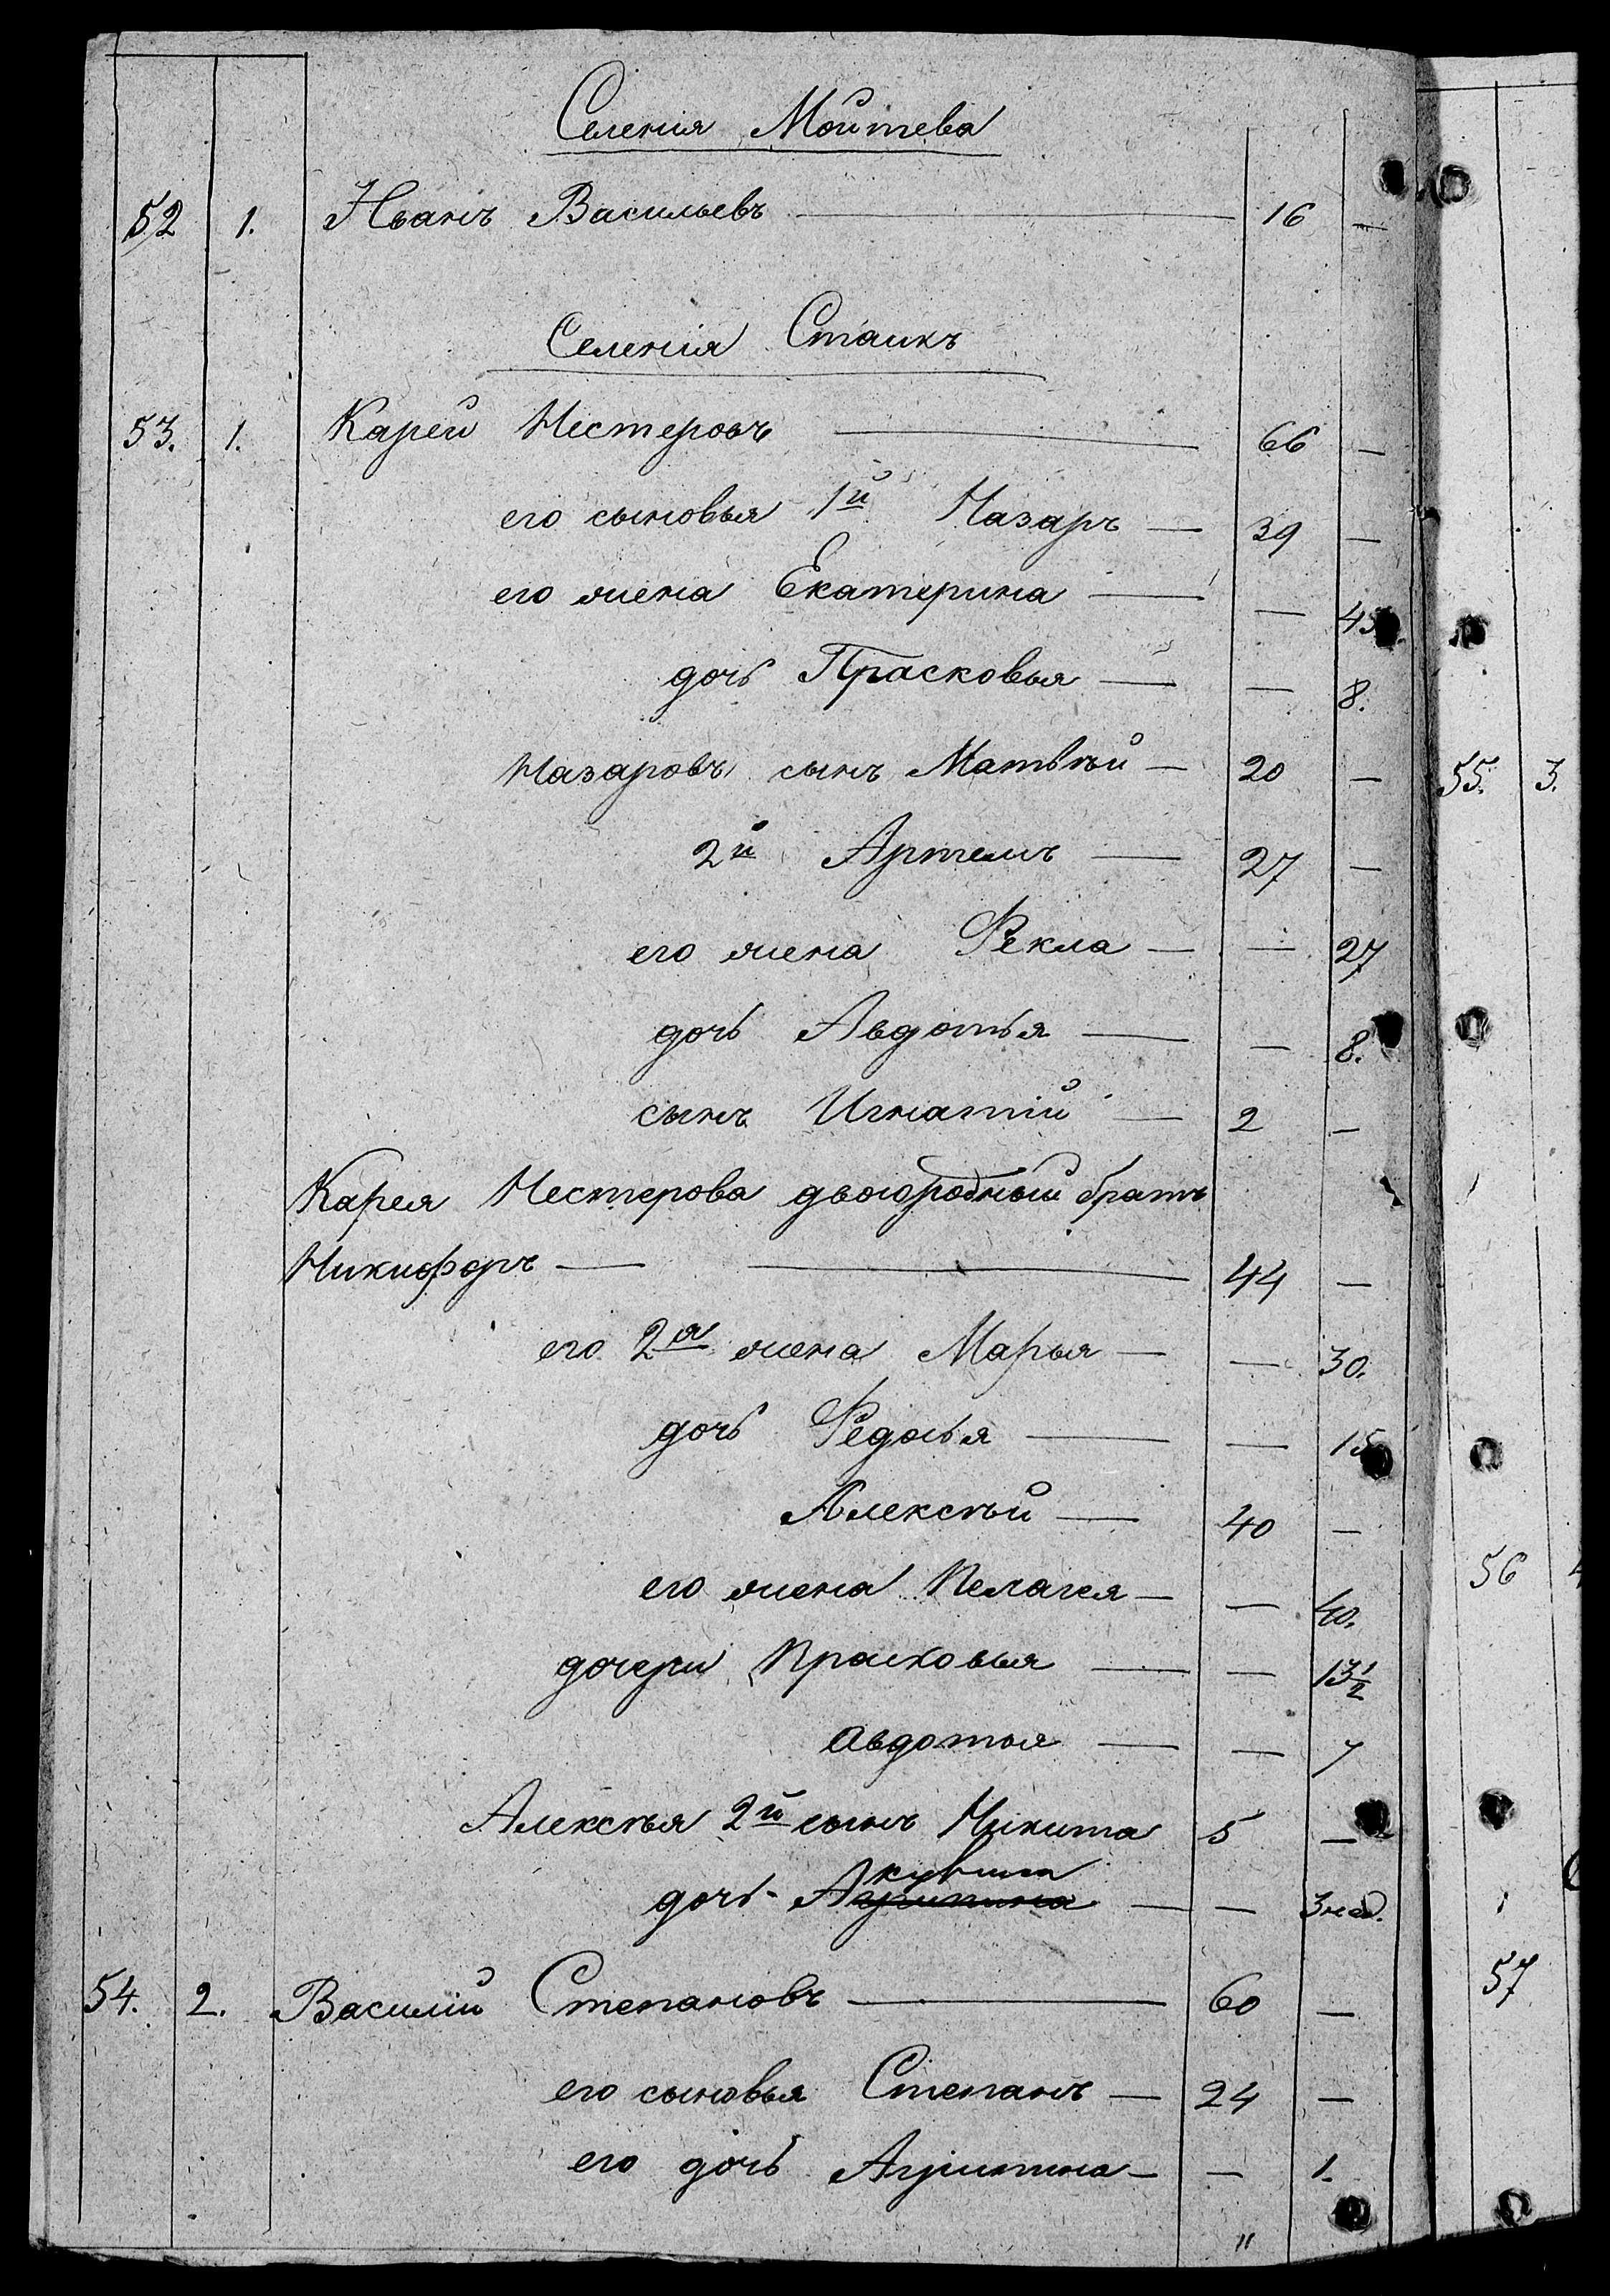 Селенія Мойтева
52 1. Иванъ Васильевъ — 16 —
Селенія Стаикъ
53. 1. Карей Нестеровъ — 66 —
его сыновья 1й Назаръ — 39 —
его жена Екатерина — — 45.
дочь Прасковья — — 8.
Назаровъ сынъ Матвѣй — 20 —
2й Артемъ — 27 —
его жена Фекла — — 27
дочь Авдотья — — 8.
сынъ Игнатій — 2 —
Карея Нестерова двоюродный братъ
Никифоръ — — 44 —
его 2я жена Марья — — 30.
дочь Федосья — — 15
Алексѣй — 40 —
его жена Пелагея — — 40.
дочери Прасковья — — 13 1/2
Авдотья — — 7
Алексѣя 2й сынъ Никита 5 —
дочь - Акулина — — 3 нед.
54. 2. Василій Степановъ — 60 —
его сыновья Степанъ — 24 —
его дочь Агрипина — — 1.
"
55. 3.
56
57